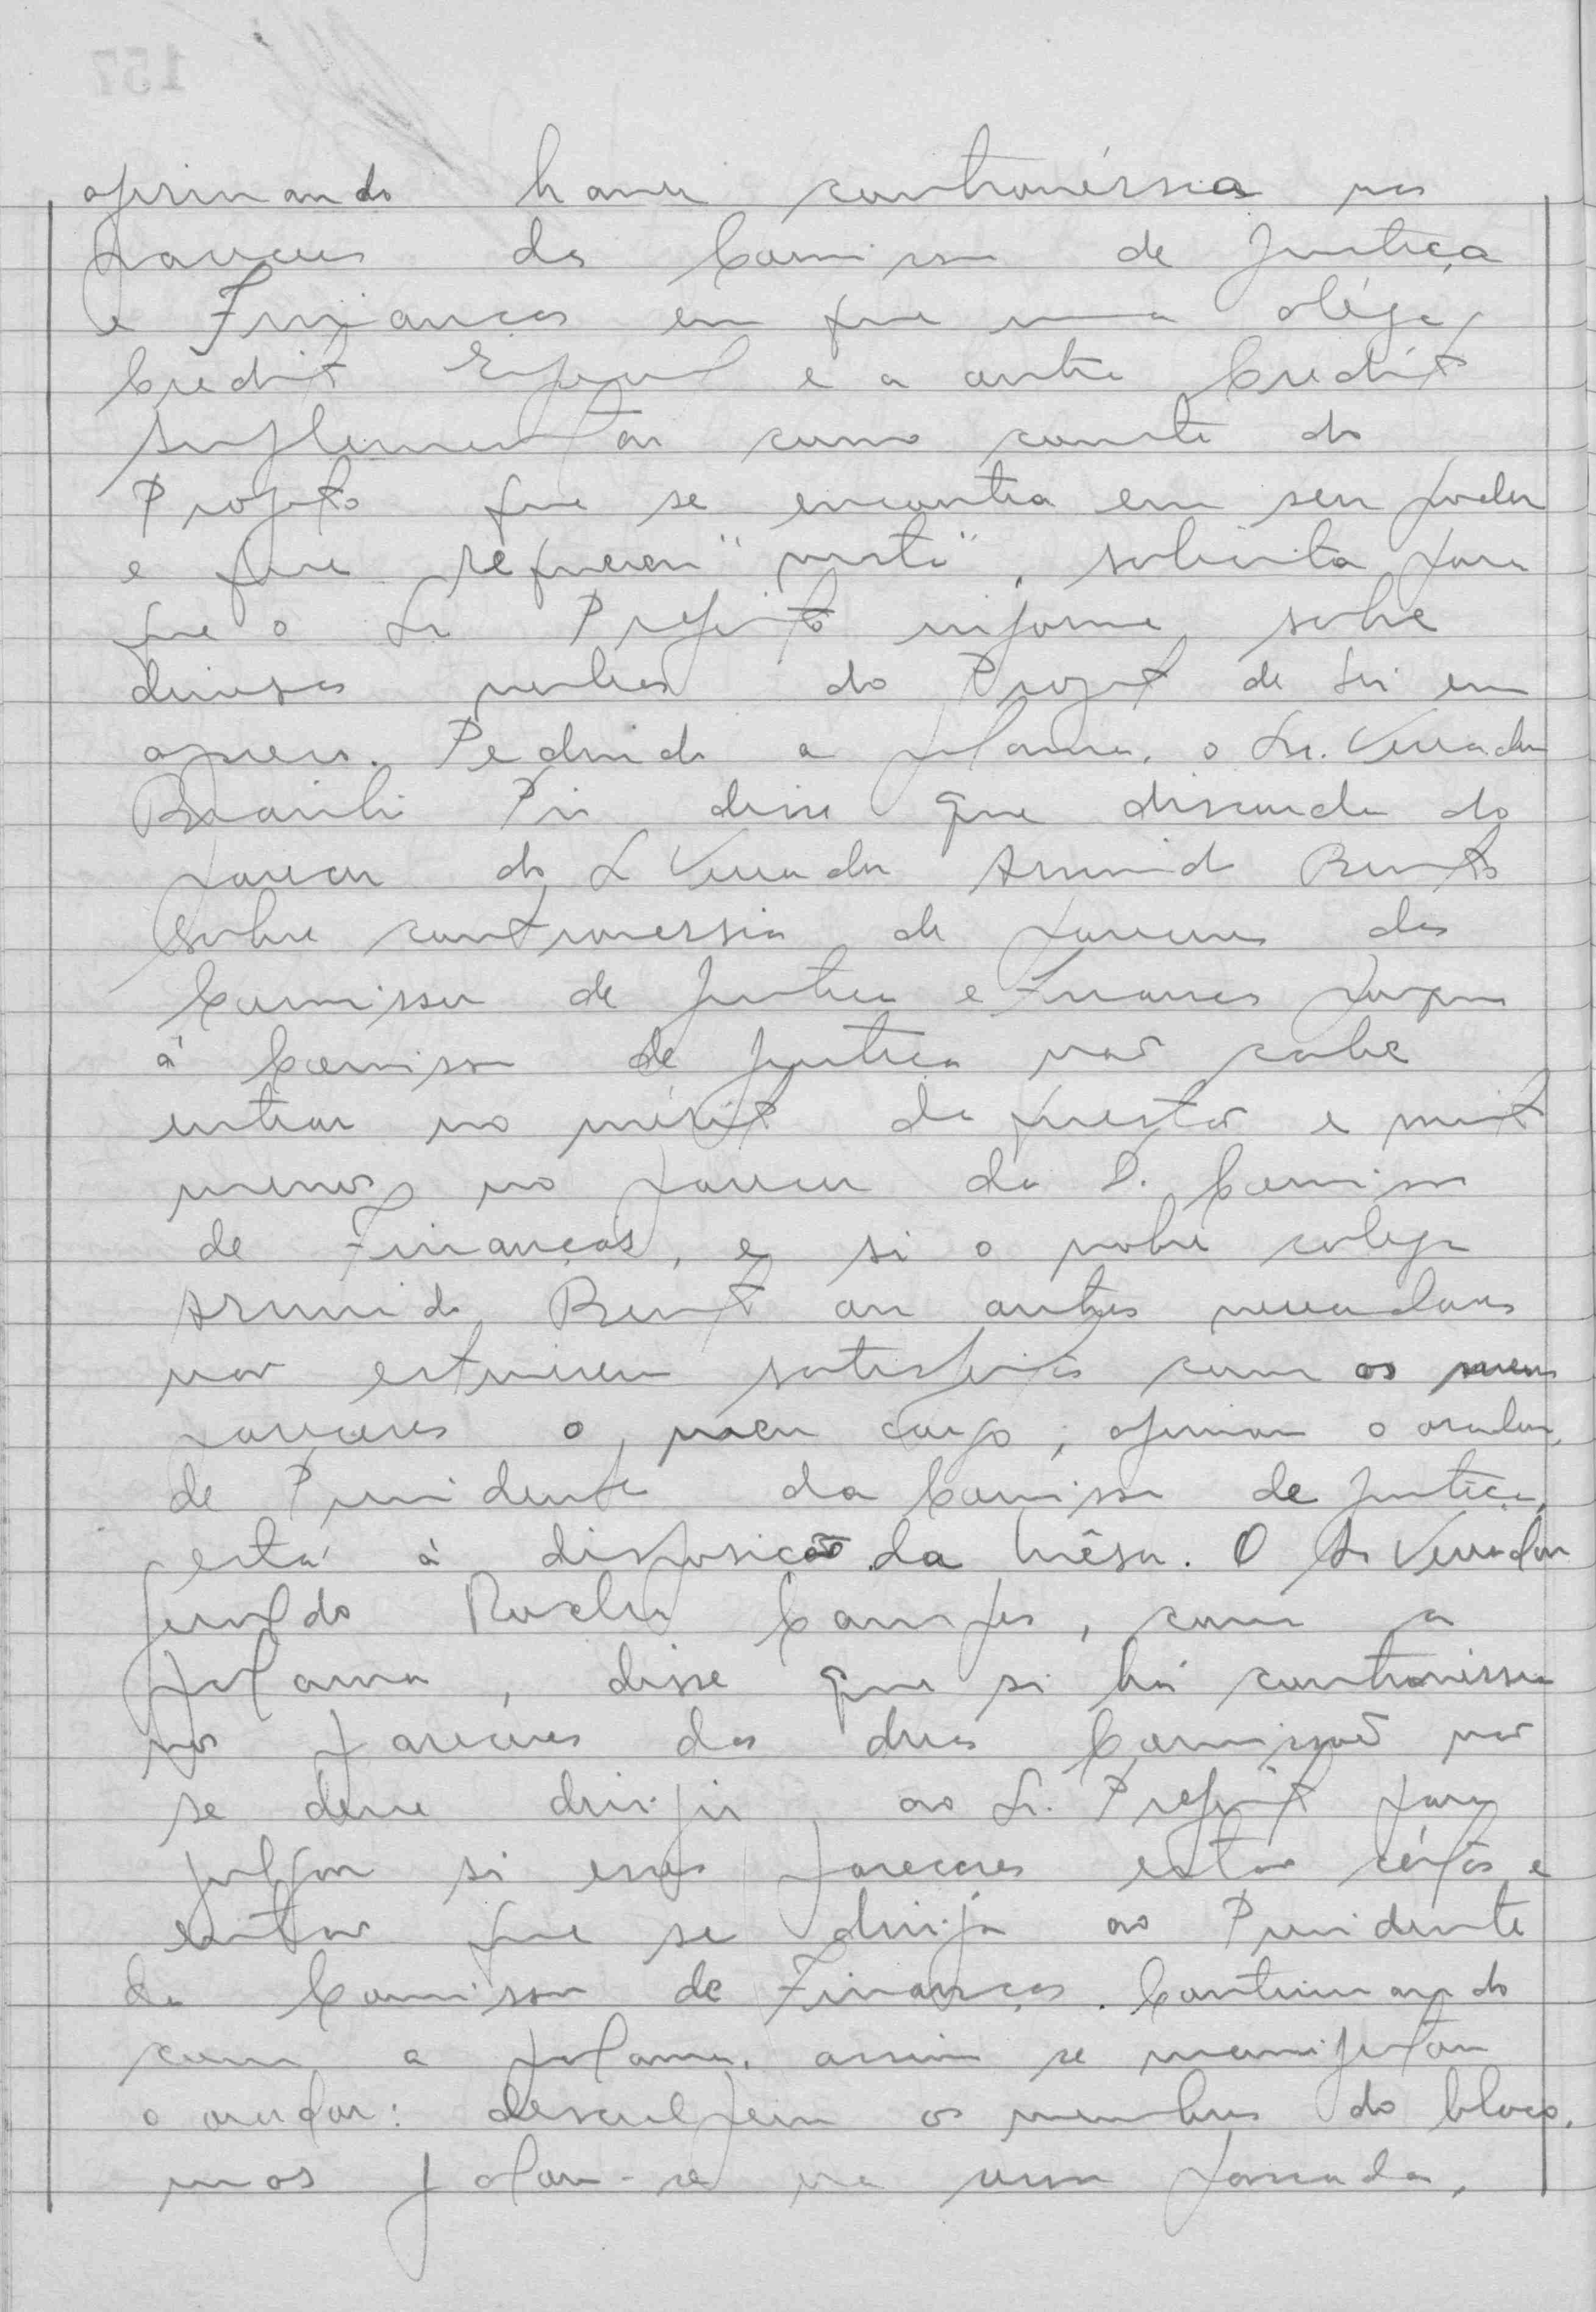 afirmando haver controvérsia nos
pareceres da Comissão de Justiça
e Finanças em que uma alega
Credito Especial e a outra Credito
Suplementar como consta do
Projeto que se encontra em seu poder
e que requereu "vista", solicita para
que o Sr Prefeito informe sobre
diversas verbas do Projeto de Lei em
apreço. Pedindo a palavra, o Sr. Vereador
disse que discorda do
parecer do Sr Vereador Arminido Bento
sobre controversia de pareceres das
Comissões de Justiça e Finanças porque
à Comissão de Justiça não cabe
entrar no mérito da questão e muito
menos no parecer da D. Comissão
de Finanças, e si o nobre colega
Arminido Bento ou outros vereadores
não estiverem satisfeitos com os meus
pareceres o meu cargo, afirmou o orador,
de Presidente da Comissão de Justiça,
está à disposição da Mêsa. O Sr Vereador
Geraldo Rocha Campos, com a
palavra, disse que si há controvérsia
nos pareceres das duas Comissões não
se deve dirigir ao Sr. Prefeito para
julgar si esses pareceres estão cértos e
então que se dirija ao Presidente
da Comissão de Finanças. Continuando
com a palavra, assim se manifestou
o orador: desculpem os membros do bloco,
mas falou-se na uma passada,